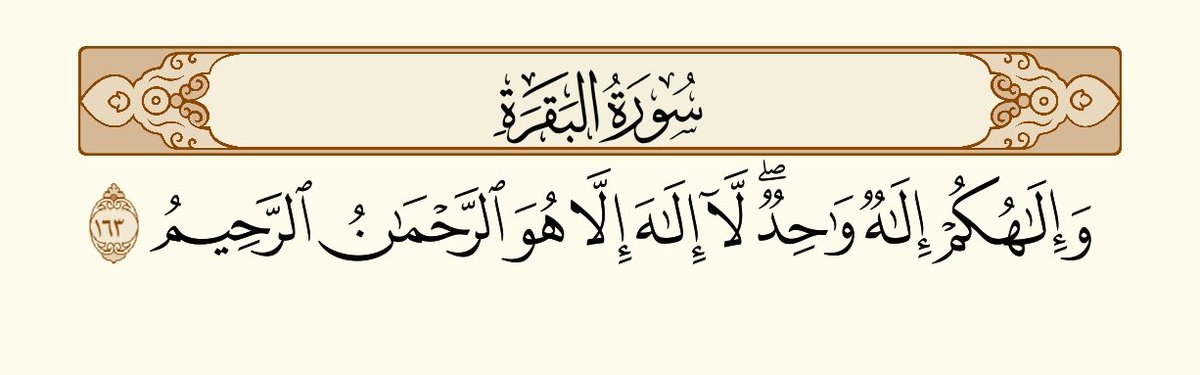 سُورَةُ البَقَرَةِ
وَإِلَٰهُكُمْ إِلَٰهٌ وَٰحِدٌ ۖ لَّآ إِلَٰهَ إِلَّا هُوَ ٱلرَّحْمَٰنُ ٱلرَّحِيمُ ١٦٣